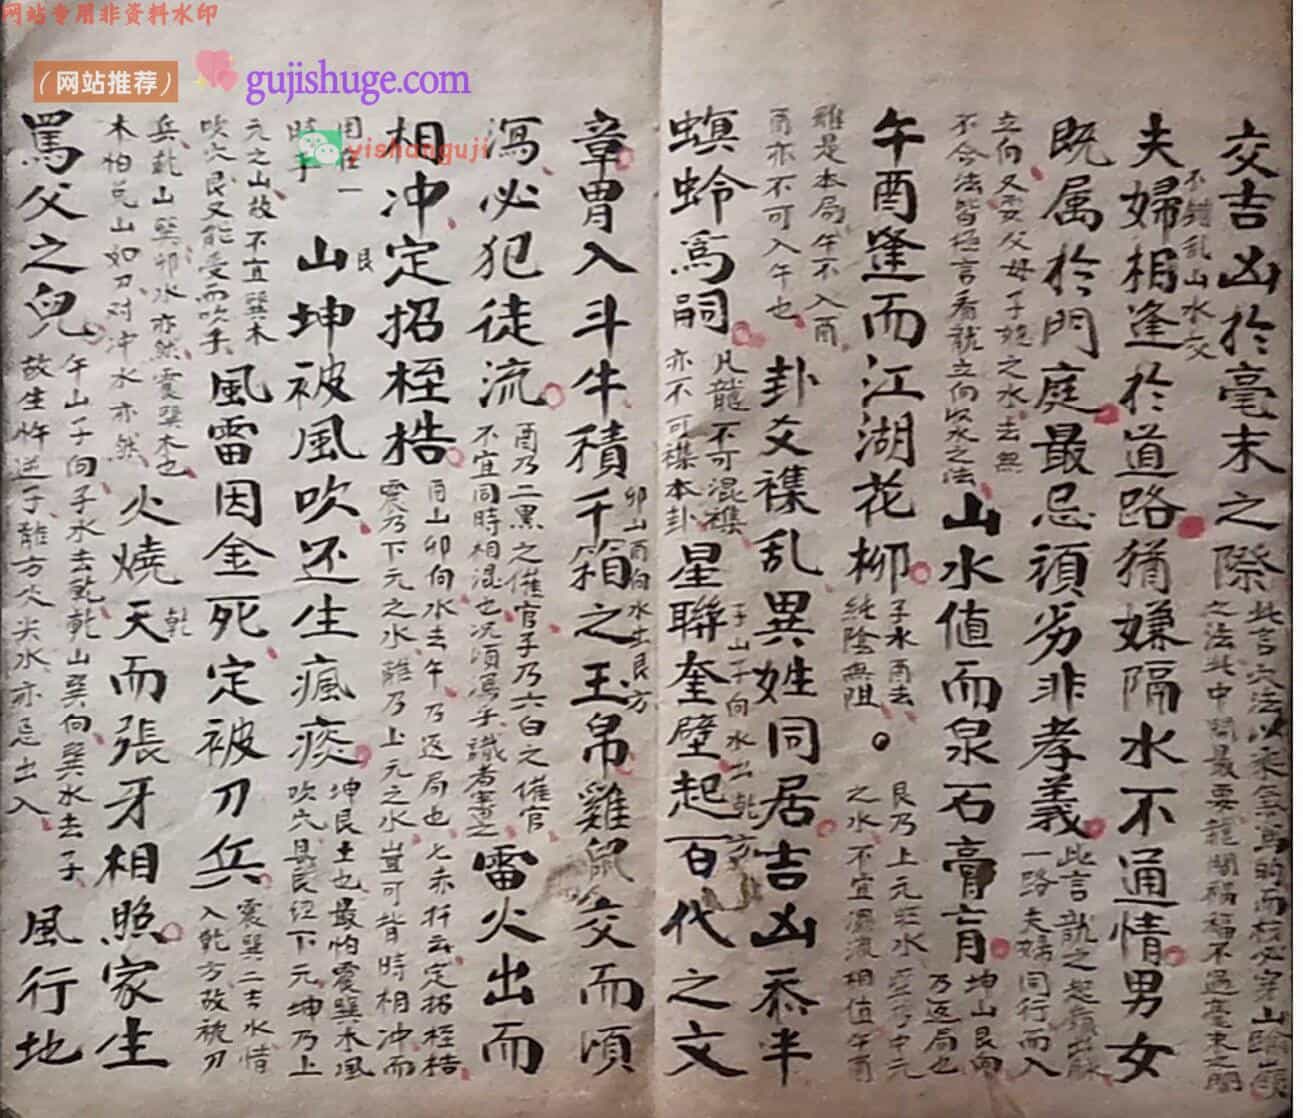 网站专用非资料水印
（网站推荐）
gujishuge.com
yishanguji
交吉凶於毫末之際
此言穴法以乘氣爲的而
之法此中間最要龍關福不過毫末之間
夫婦相逢於道路猶嫌隔水不通情男女
不錯乱山水交
既属於門庭最忌頑劣非孝義
此言龍之起
一路夫婦同行而入
立向又要父母子媳之水去無
不合法皆極言看龍立向收水之法
山水值而泉石膏肓
坤山艮向
乃返局也
午酉逢而江湖花柳
子水酉去
純陰無阻。
艮乃上元旺水 中元
之水不宜 流相值午酉
雖是本局午不入酉
酉亦不可入午也
卦爻襍乱異姓同居吉凶忝半
螟蛉爲嗣
凡龍不可混襍
亦不可襍本卦
星聯奎壁起百代之文
子山子向水出乾方
章胃入斗牛積千箱之玉帛雞鼠交而頃
卯山酉向水出艮方
瀉必犯徒流
酉乃二黑之催官子乃六白之催官
不宜同時相混也况頃瀉乎識者
雷火出而
相冲定招桎梏
酉山卯向水去午乃返局也七赤 云定招桎梏
震乃下元之水離乃上元之水豈可皆時相冲而
用在一
時乎
山坤被風吹还生瘋痰
艮
坤艮土也最怕震巽木風
吹穴 下元坤乃上
元之山故不宜巽木
吹穴艮又能受而吹乎
風雷因金死定被刀兵
震巽二吉水惜
入乾方故被刀
兵乾山巽卯水亦然震巽木也
木怕兑山如刀对冲水亦然
火燒天而張牙相照家生
乾
罵父之兒
午山子向子水去乾乾山巽向巽水去子
故生忤逆子離方火尖水亦忌出入
風行地